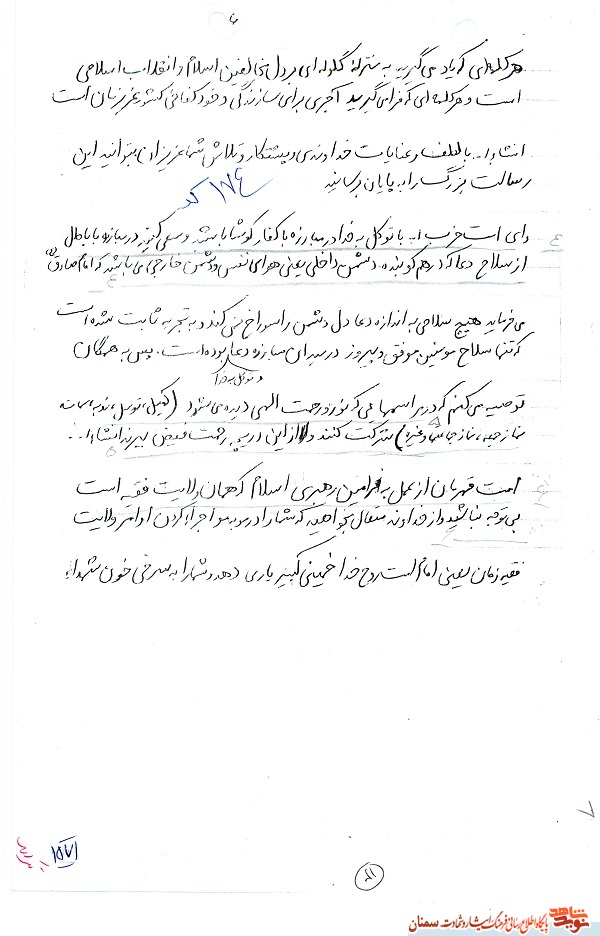 هر کلمه‌ای که یاد می‌گیرید به منزلهٔ گلوله‌ای بر دل مخالفین اسلام و انقلاب اسلامی
است و هر کلمه‌ای که فرا می‌گیرید آجری برای سازندگی و خودکفائی کشور عزیزمان است
انشاءا... با لطف و عنایات خداوندی و پشتکار و تلاش شما عزیزان بتوانید این
رسالت بزرگ را به پایان برسانید
۱۷۶ کد
وای امت حزب ا... با توکل به خدا در مبارزه با کفار کوشا باشید و سعی کنید در مبارزه با باطل
از سلاح دعا که درهم کوبنده دشمن داخلی یعنی هوای نفس و دشمن خارجی می‌باشد که امام صادق (ع)
می‌فرماید هیچ سلاحی به اندازه دعا دل دشمن را سوراخ نمی‌کند و به تجربه ثابت شده است
که تنها سلاح مومنین موفق و پیروز در میدان مبارزه دعا بوده است، پس به همگان
و توکل به خدا
توصیه می‌کنم که در مراسمهایی که نور و رحمت الهی دیده می‌شود (کمیل، توسل، ندبه، سمات
نماز جمعه، نماز جماعت و غیره) شرکت کنند و از این دریچه رحمت فیض ببرند انشاءا...
امت قهرمان از عمل به فرامین رهبری اسلام که همان ولایت فقیه است
بی‌توجه نباشید و از خداوند متعال بخواهید که شما را در مو به مو اجرا کردن اوامر ولایت
فقیه زمان یعنی امام امت روح خدا خمینی کبیر یاری دهد و شما را به سرخی خون شهداء
۷
۱۵۷۱
شاهد
نوید
پایگاه اطلاع رسانی فرهنگ ایثار و شهادت سمنان